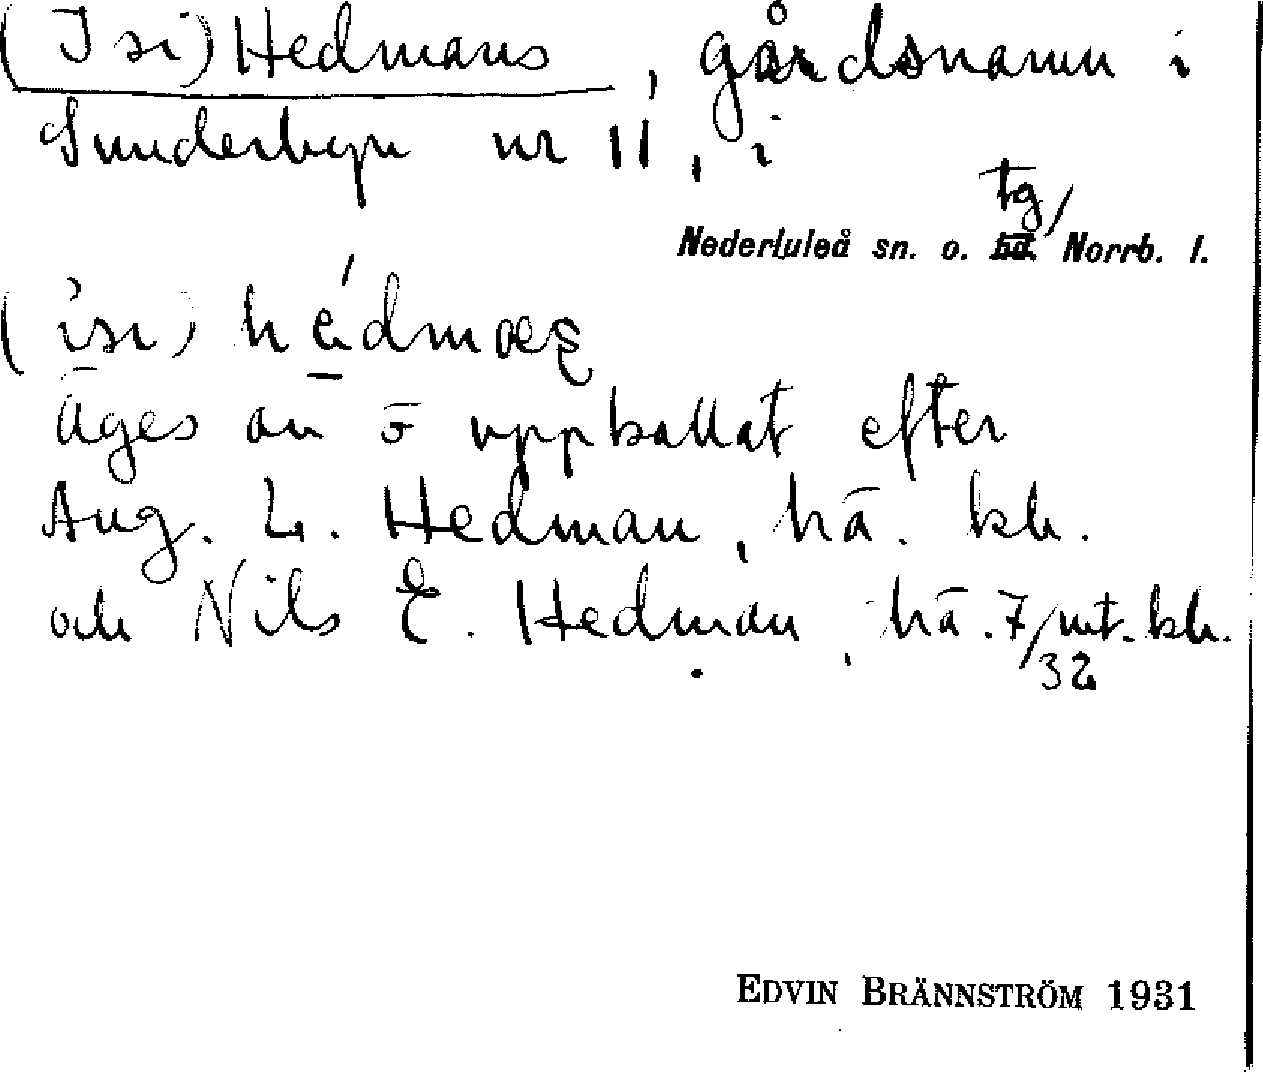 (Isi) Hedmans, gårdsnamn i
Sunderbyn nr 11, i
tg/
Nederluleå sn. o. hd. Norrb. l.
(isi)
äges av o uppkallat efter
Aug. L. Hedman, hä. kh.
och Nils E. Hedman, hä. 7/32 mt. kh.
EDVIN BRÄNNSTRÖM 1931